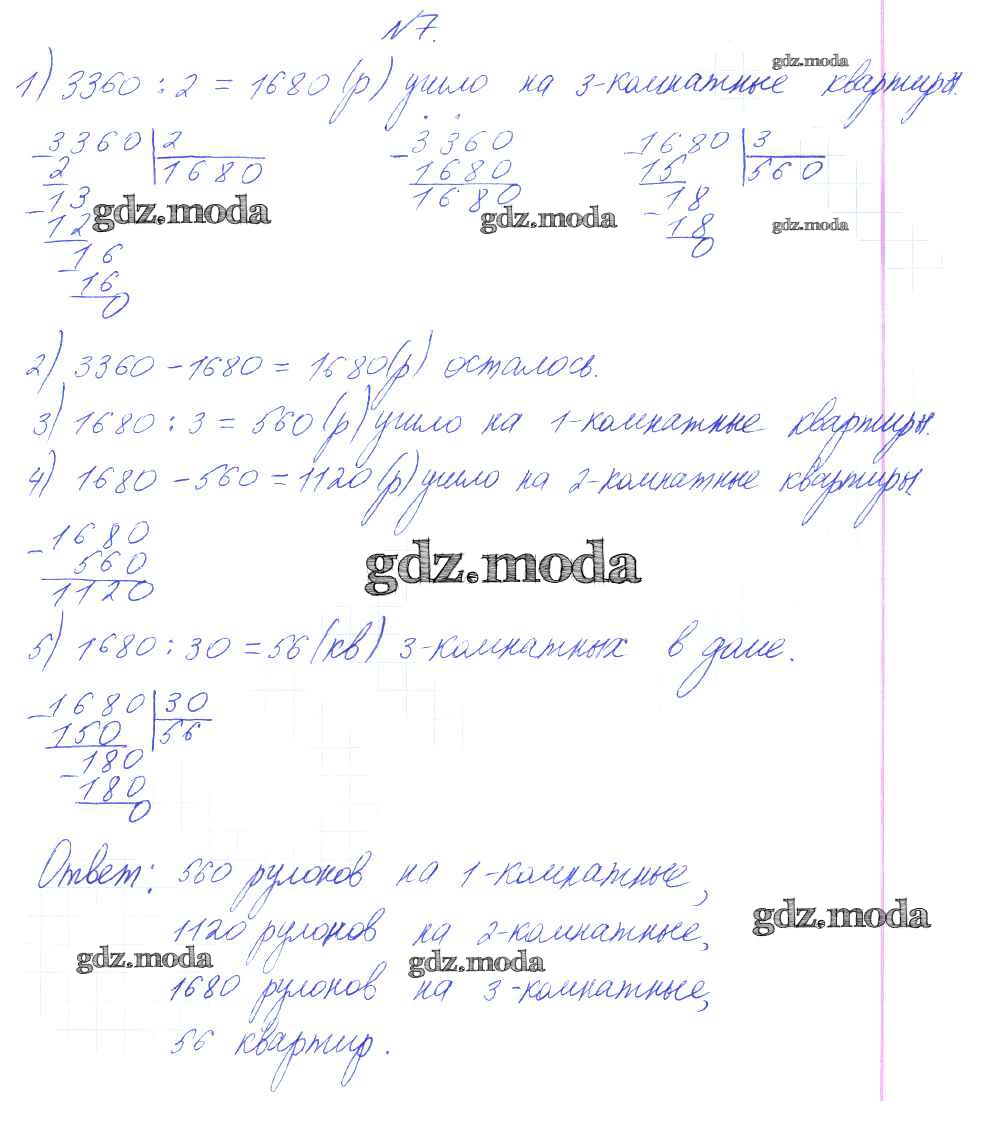 N7.
gdz.moda
1) 3360 : 2 = 1680 (р) ушло на 3-комнатные квартиры.
3360 | 2     3360     1680 | 3
2     1680     1680     15     560
13     1680     18
12     18
gdz.moda     gdz.moda     gdz.moda
16     0
16
0
2) 3360 - 1680 = 1680 (р) осталось.
3) 1680 : 3 = 560 (р) ушло на 1-комнатные квартиры.
4) 1680 - 560 = 1120 (р) ушло на 2-комнатные квартиры
- 1680
560
gdz.moda
1120
5) 1680 : 30 = 56 (кв) 3-комнатных в доме.
- 1680 | 30
150     56
- 180
180
0
Ответ: 560 рулонов на 1-комнатные,
gdz.moda
1120 рулонов на 2-комнатные,
gdz.moda     gdz.moda
1680 рулонов на 3-комнатные,
56 квартир.